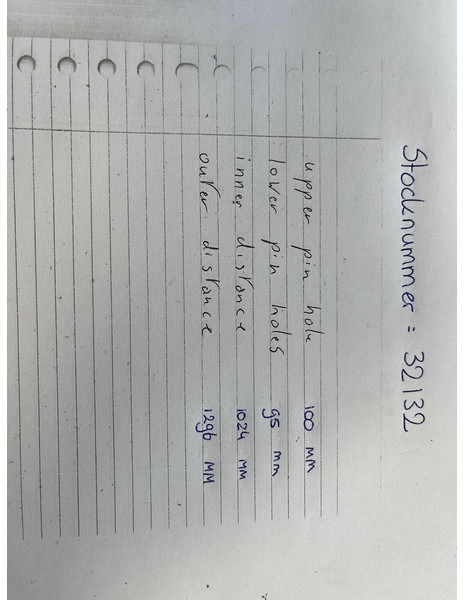 Stocknummer = 32132
upper pin hole 100 mm
lower pin holes 95 mm
inner distance 1024 mm
outer distance 1296 MM